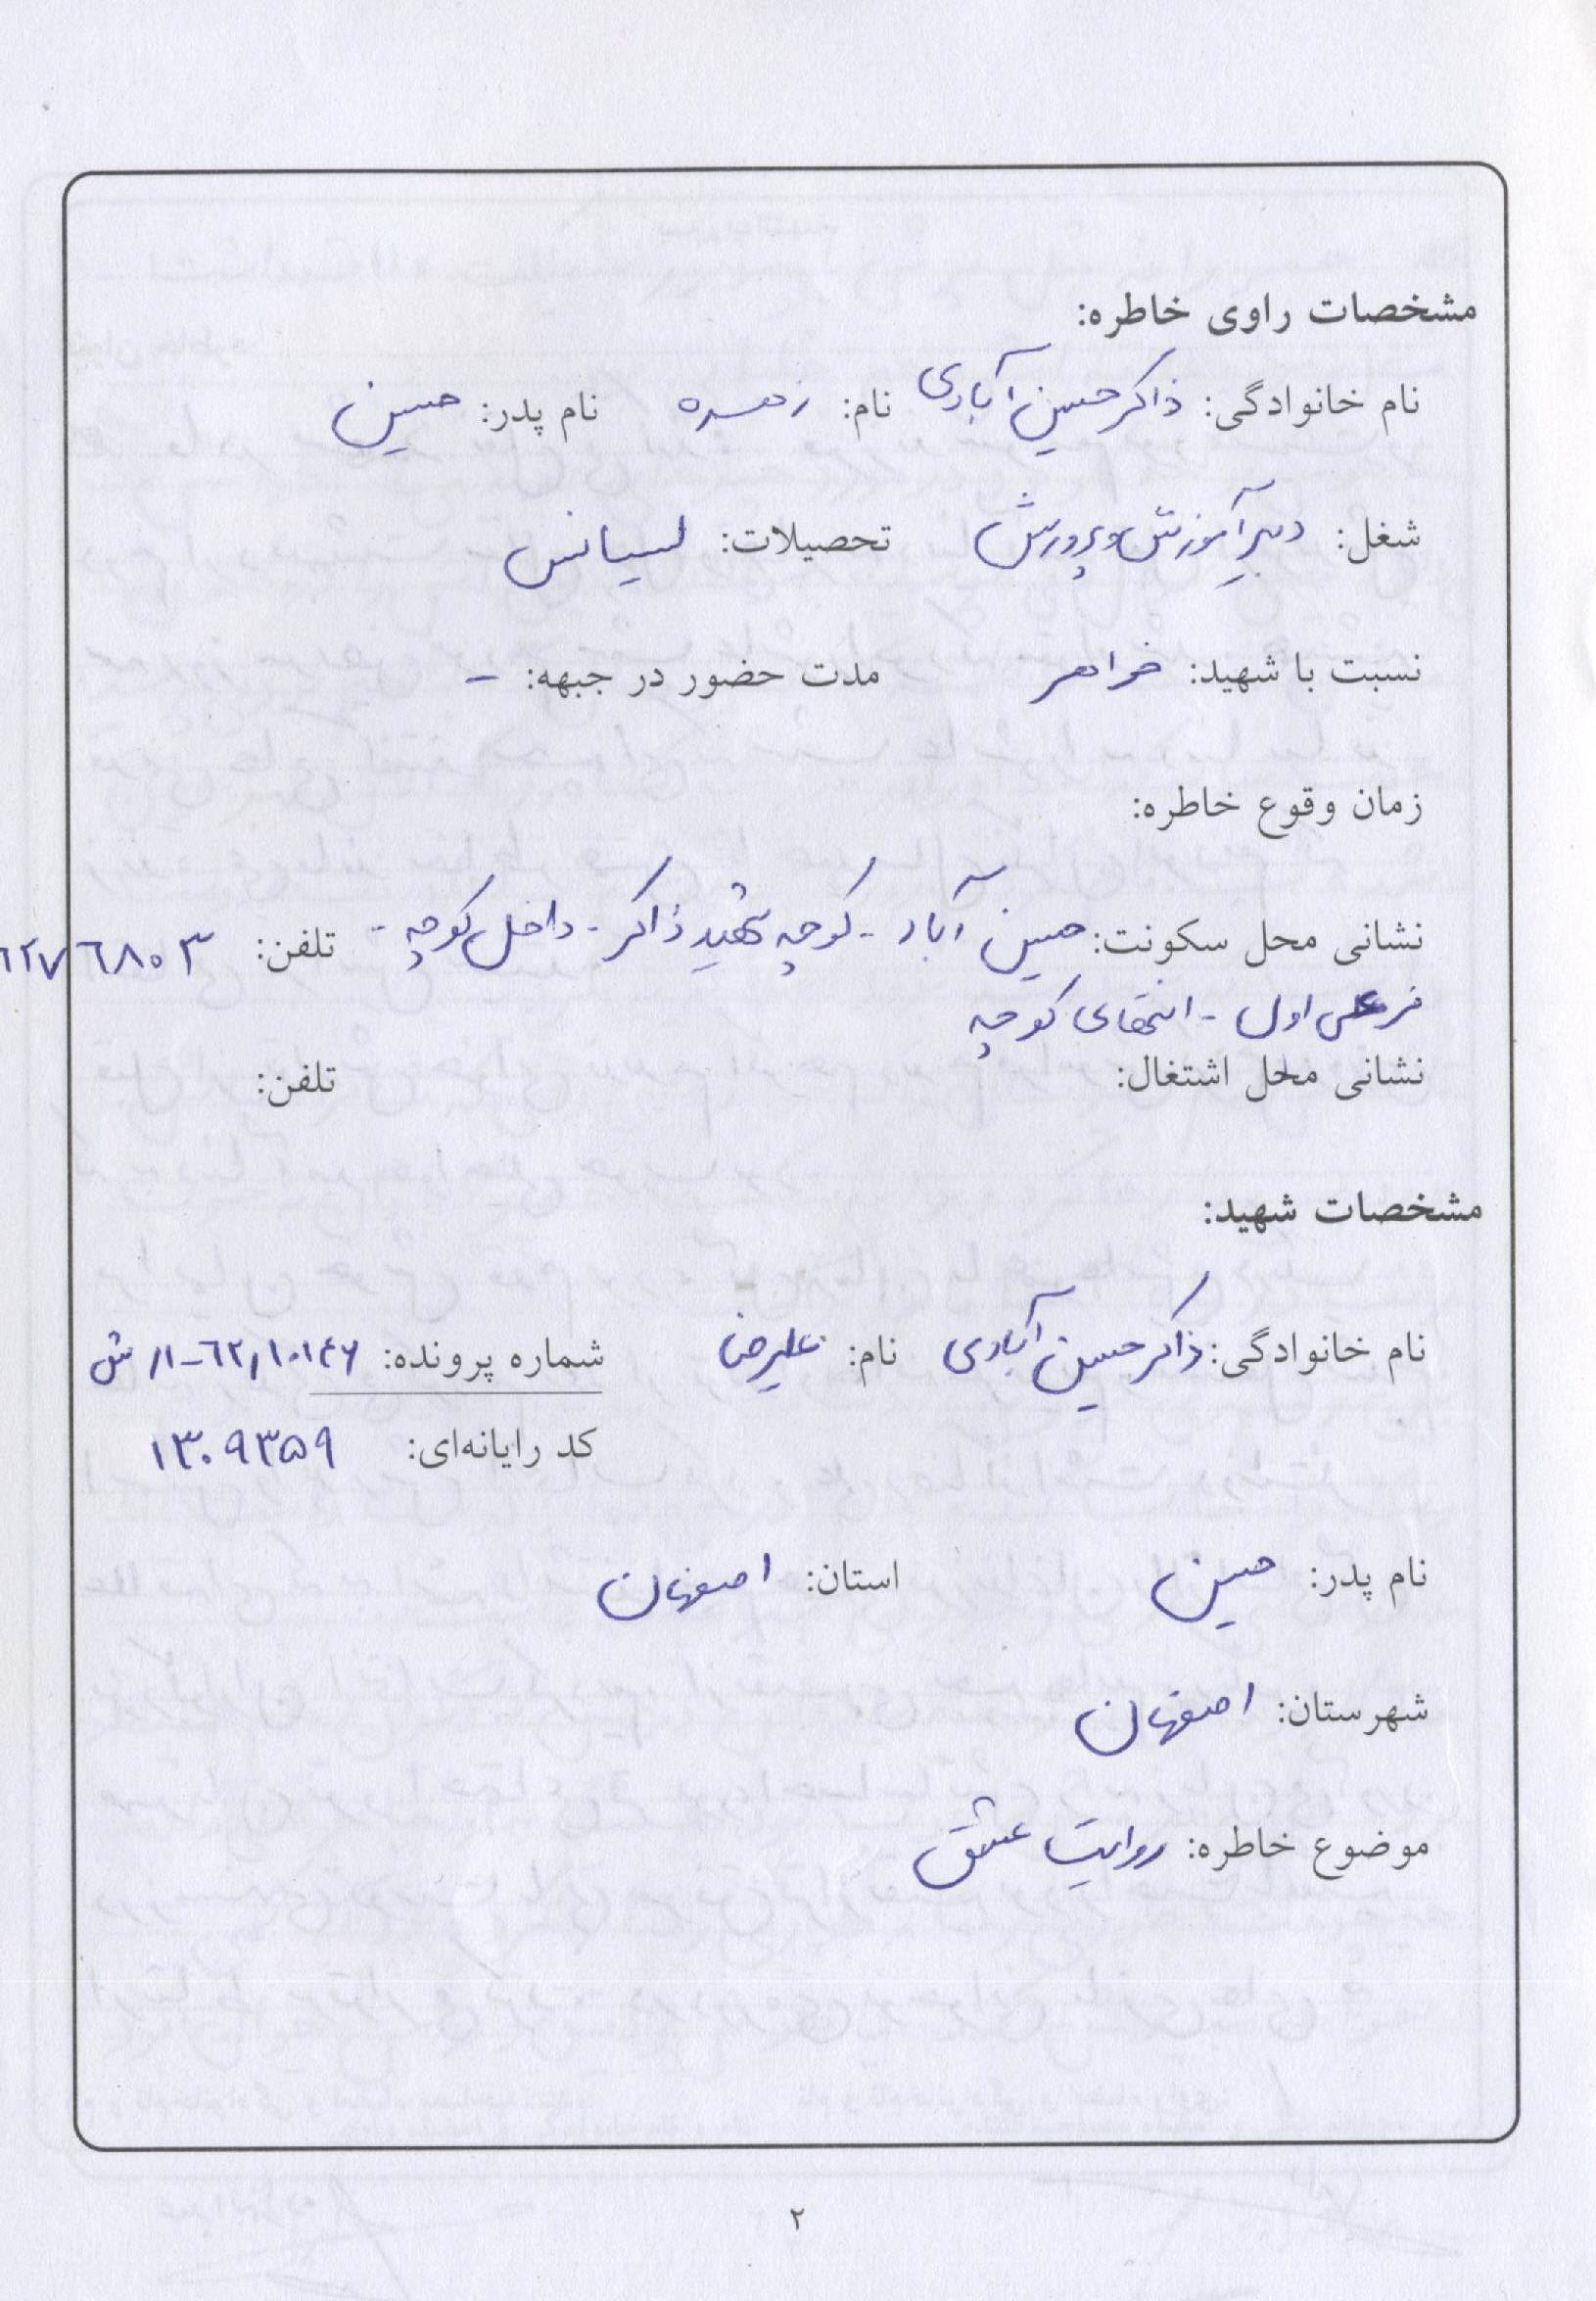 مشخصات راوی خاطره:
نام خانوادگی: ذاکر حسین آبادی نام: زهره نام پدر: حسین
شغل: دبیر آموزش و پرورش تحصیلات: لیسانس
نسبت با شهید: خواهر مدت حضور در جبهه: -
زمان وقوع خاطره:
نشانی محل سکونت: حسین آباد - کوچه شهید ذاکر - داخل کوچه - تلفن: ٦٢٧٦٨٠٣
فرعی اول - انتهای کوچه
نشانی محل اشتغال: تلفن:
مشخصات شهید:
نام خانوادگی: ذاکر حسین آبادی نام: علیرضا شماره پرونده:
کد رایانه‌ای: ۱۳۰۹۳۵۹
نام پدر: حسین استان: اصفهان
شهرستان: اصفهان
موضوع خاطره: روایت عشق
۲